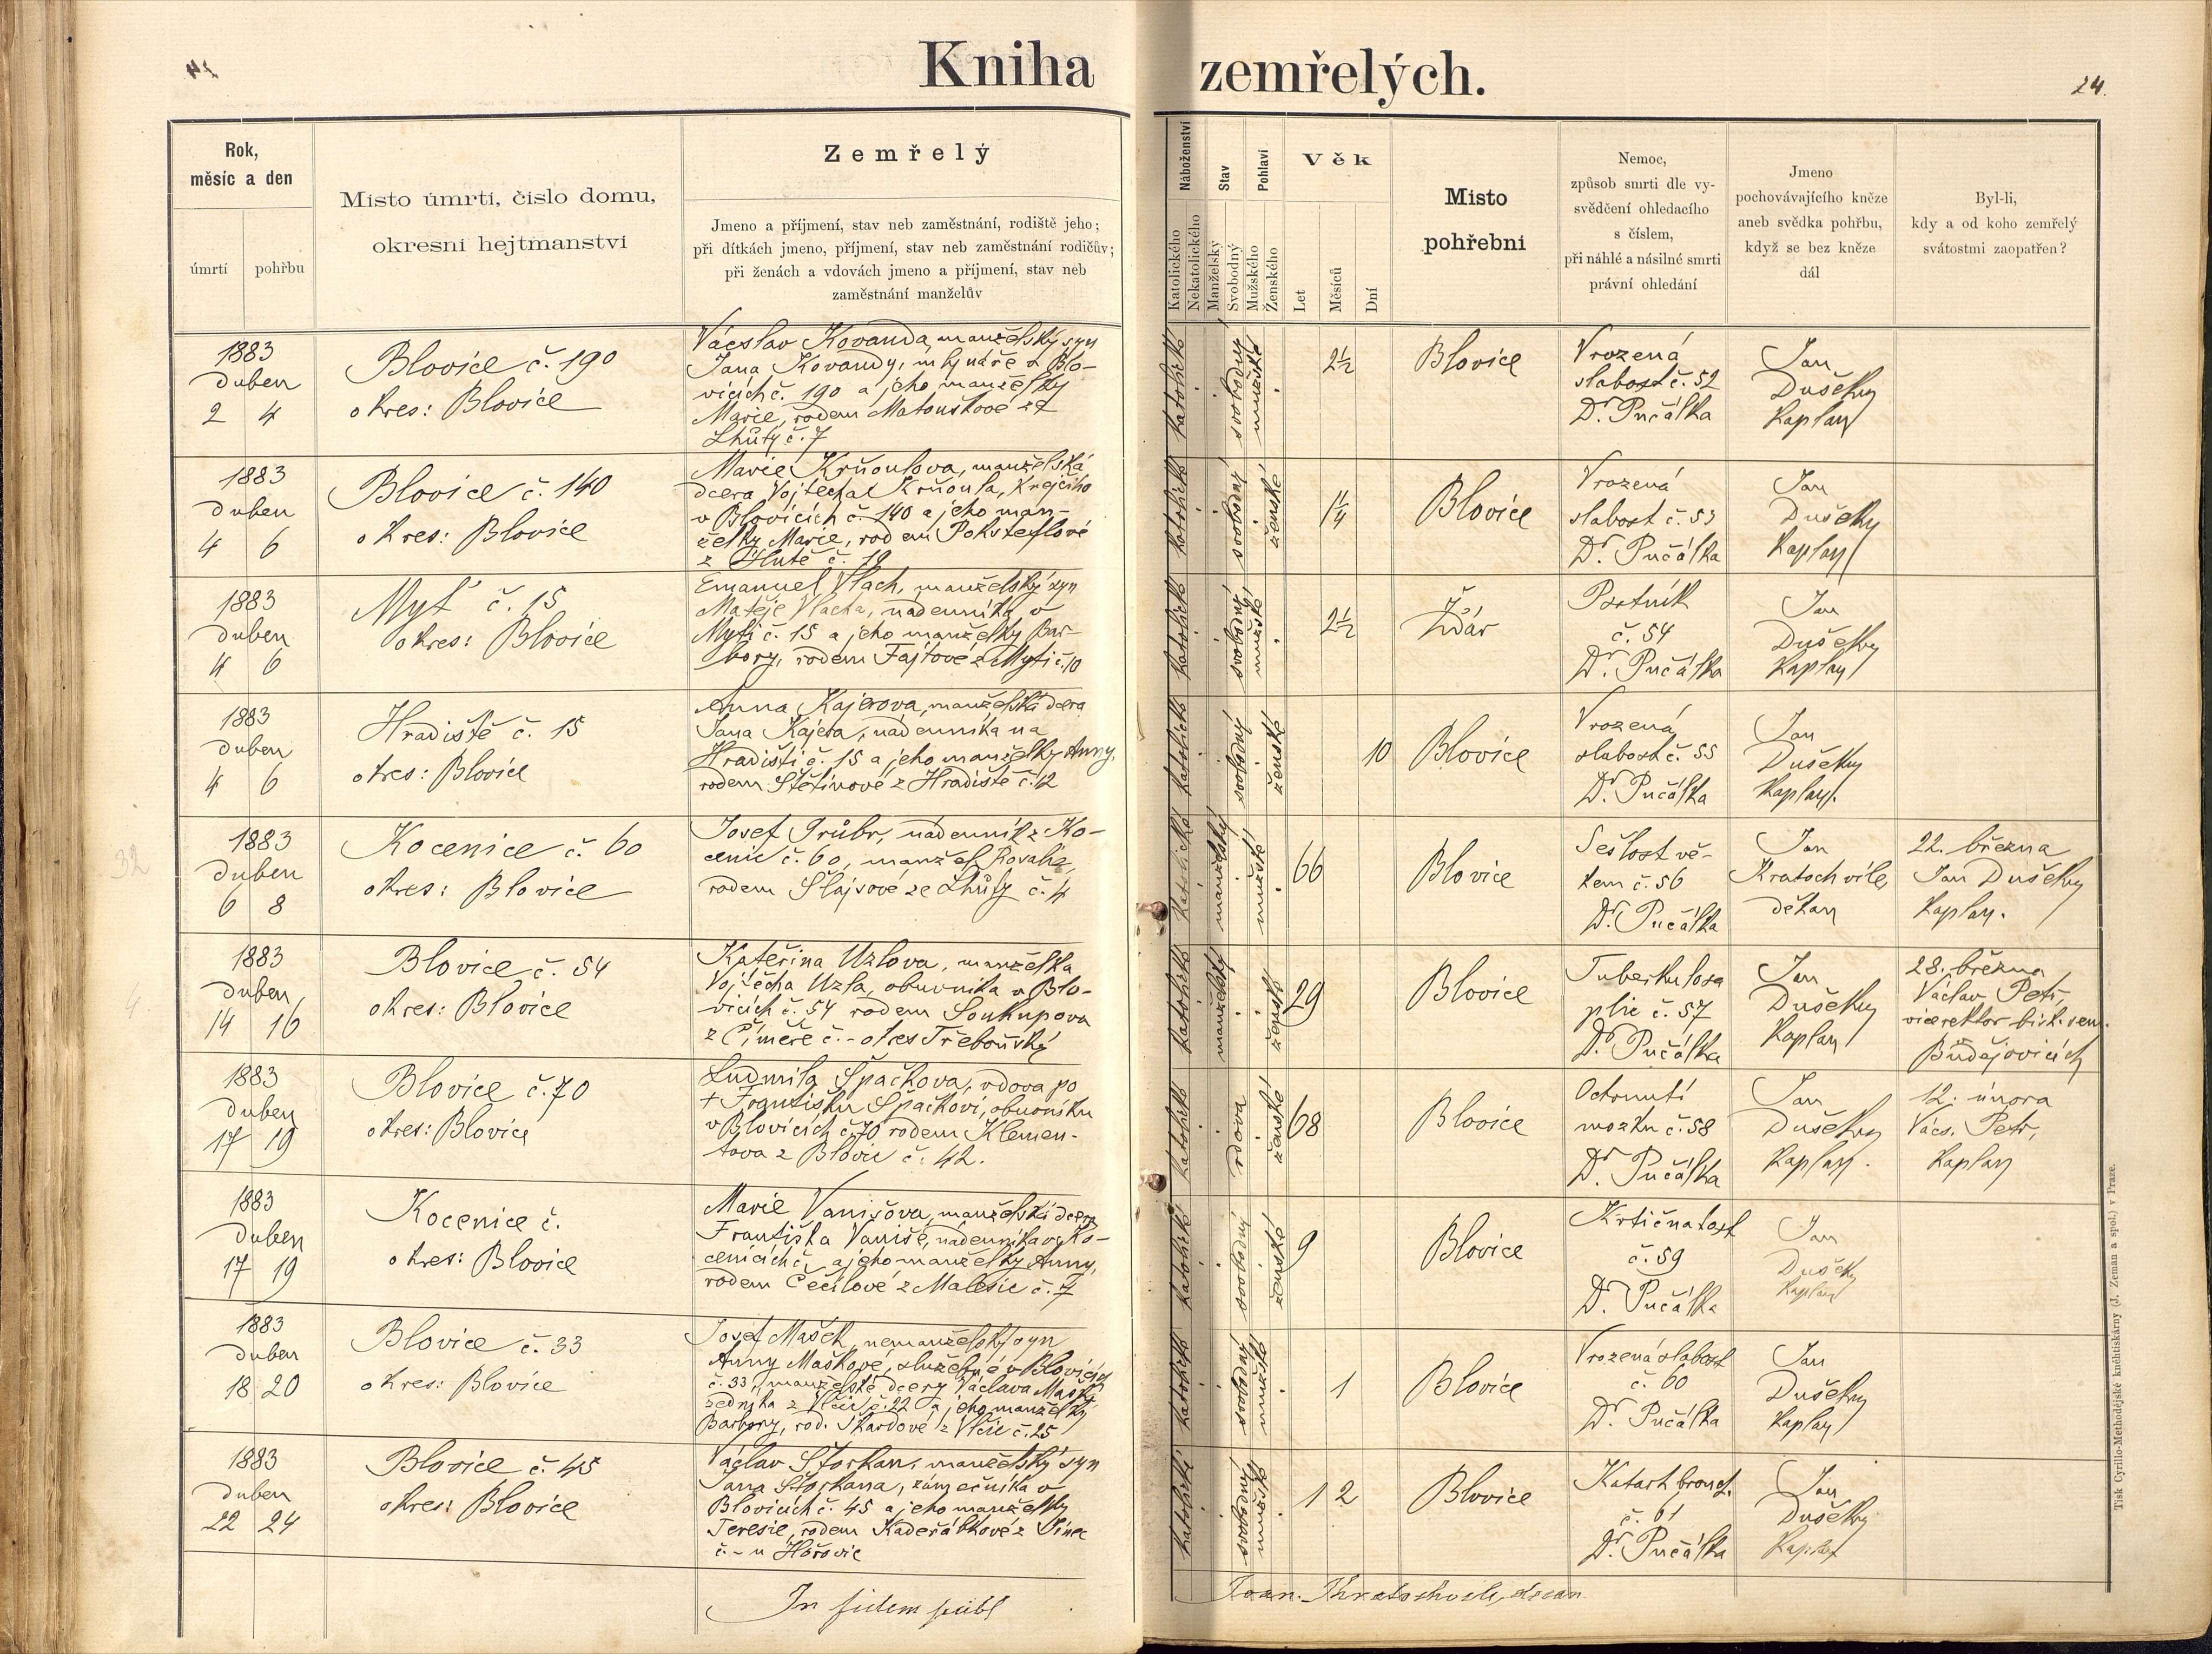 Kniha zemřelých.
24.
Rok,
měsíc a den
úmrtí
pohřbu
Místo úmrtí, číslo domu,
okresní hejtmanství
Zemřelý
Jmeno a příjmení, stav neb zaměstnání, rodiště jeho;
při dítkách jmeno, příjmení, stav neb zaměstnání rodičův;
při ženách a vdovách jmeno a příjmení, stav neb
zaměstnání manželův
Náboženství
Katolického
Nekatolického
Stav
Manželsky
Svobodný
Pohlaví
Mužského
Ženského
Věk
Let
Měsíců
Dní
Místo
pohřební
Nemoc,
způsob smrti dle vy-
svědčení ohledacího
s číslem,
při náhlé a násilné smrti
právní ohledání
Jmeno
pochovávajícího kněze
aneb svědka pohřbu,
když se bez kněze
dál
Byl-li,
kdy a od koho zemřelý
svátostmi zaopatřen?
1883
duben
2 4
Blovice č. 190
okres: Blovice
Vácslav Kovanda, manželský syn
Jana Kovandy, mlynáře v Blo-
vicích č. 190 a jeho manželky
Marie, rodem Matouškové ze
Lhůty č. 7
katolické
svobodný
mužské
2½
Blovice
Vrozená
slabost č. 52
Dr. Pučálka
Jan
Dušeky
kaplan
1883
duben
4 6
Blovice č. 140
okres: Blovice
Marie Krňoulova, manželská
dcera Vojtěcha Krňoula, krejčího
v Blovicích č. 140 a jeho man-
želky Marie, rodem Poksteflové
z Hutě č. 19
katolické
svobodný
ženské
1¼
Blovice
Vrozená
slabost č. 53
Dr. Pučálka
Jan
Dušeky
kaplan
1883
duben
4 6
Myť č. 15
okres: Blovice
Emanuel Vlach, manželský syn
Matěje Vlacha, nádenníka v
Myti č. 15 a jeho manželky Bar-
bory, rodem Fajtové z Myti č. 10
katolické
svobodný
mužské
2½
Žďár
Psotník
č. 54
Dr. Pučálka
Jan
Dušeky
kaplan
1883
duben
4 6
Hradiště č. 15
okres: Blovice
Anna Kajerova, manželská dcera
Jana Kajera, nádenníka na
Hradišti č. 15 a jeho manželky Anny,
rodem Štětinové z Hradiště č. 12
katolické
svobodný
ženské
10
Blovice
Vrozená
slabost č. 55
Dr. Pučálka
Jan
Dušeky
kaplan.
32
1883
duben
6 8
Kocenice č. 60
okres: Blovice
Josef Průbr, nádenník z Ko-
cenic č. 60, manžel Rosalie,
rodem Šlajsové ze Lhůty č. 4
katolické
manželský
mužské
66
Blovice
Sešlost vě-
kem č. 56
Dr. Pučálka
Jan
Kratochvíle,
děkan
22. března
Jan Dušeky
kaplan.
4
1883
duben
14 16
Blovice č. 54
okres: Blovice
Kateřina Uzlova, manželka
Vojtěcha Uzla, obuvníka v Blo-
vicích č. 54 rodem Soukupova
z Číměře č. - okres Třeboňský
katolické
manželský
ženské
29
Blovice
Tuberkulosa
plic č. 57
Dr. Pučálka
Jan
Dušeky
kaplan
28. března
Václav Petr,
vicerektor bisk. sem.
Budějovicích
1883
duben
17 19
Blovice č. 70
okres: Blovice
Ludmila Špačkova, vdova po
+ Františku Špačkovi, obuvníku
v Blovicích č. 70 rodem Klemen-
tova z Blovic č. 42.
katolické
vdova
ženské
68
Blovice
Ochrnutí
mozku č. 58
Dr. Pučálka
Jan
Dušeky
kaplan.
12. února
Vács. Petr,
kaplan
1883
duben
17 19
Kocenice č.
okres: Blovice
Marie Vanišova, manželská dcera
Františka Vaniše, nádenníka v Ko-
cenicích č. a jeho manželky Anny,
rodem Čečilové z Malesic č. 7
katolické
svobodný
ženské
9
Blovice
Krtičnatost
č. 59
Dr. Pučálka
Jan
Dušeky
kaplan
1883
duben
18 20
Blovice č. 33
okres: Blovice
Josef Mašek, nemanželský syn
Anny Maškové, služebné v Blovicích
č. 33, manželské dcery Václava Maška
zedníka z Vlčic č. 22 a jeho manželky
Barbory, rod. Škardové z Vlčic č. 25
katolické
svobodný
mužské
1
Blovice
Vrozená slabost
č. 60
Dr. Pučálka
Jan
Dušeky
kaplan
1883
duben
22 24
Blovice č. 45
okres: Blovice
Václav Štorkan, manželský syn
Jana Štorkana, zámečníka v
Blovicích č. 45 a jeho manželky
Teresie, rodem Kadeřábkové z
č. - u Hořovic
katolické
svobodný
mužské
1 2
Blovice
Katarh bronch.
č. 61
Dr. Pučálka
Jan
Dušeky
kaplan
In fidem publ
Joan. Kratochvíle, decan
Tisk Cyrillo-Methodějské knihtiskárny (J. Zeman a spol.) v Praze.